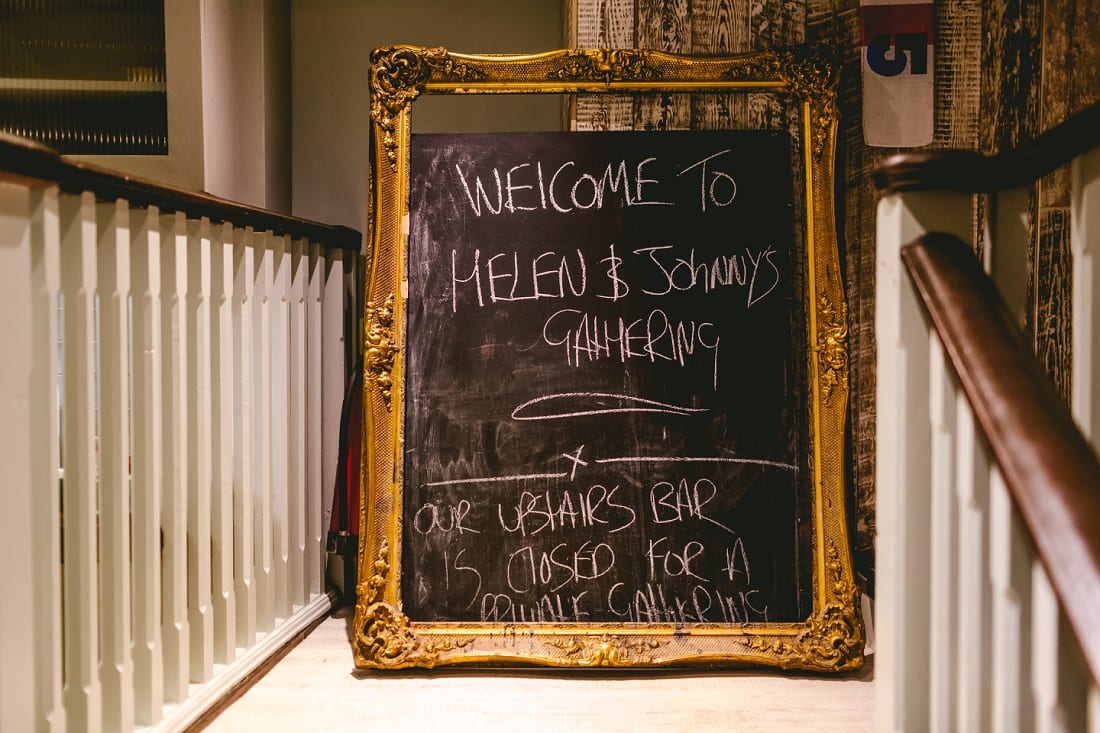 WELCOME TO
HELEN & JOHNNY'S
GATHERING
X
OUR UPSTAIRS BAR
IS CLOSED FOR A
PRIVATE GATHERING
5